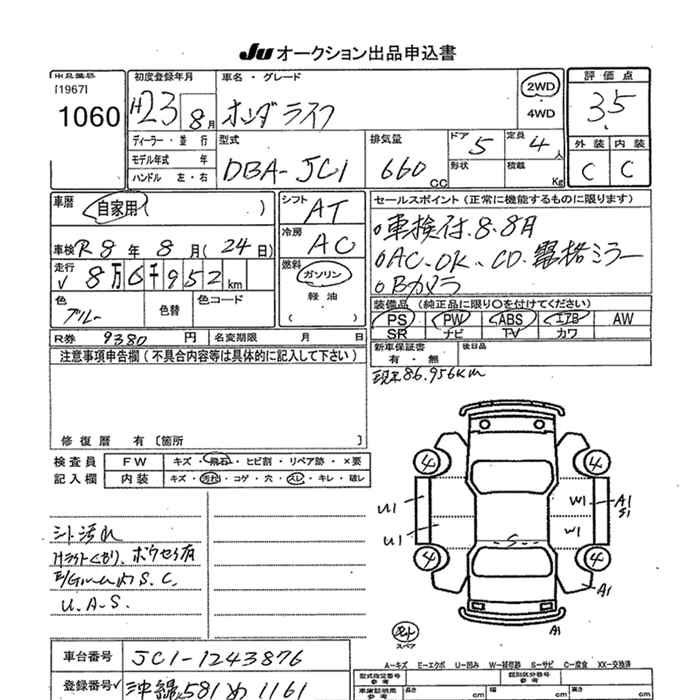 Ju オークション出品申込書
出品番号
[1967]
1060
初度登録年月
H23 8月
ディーラー・並行
モデル年式 年
ハンドル 左・右
車名・グレード
ホンダ ライフ
2WD
・
4WD
型式
DBA-JC1
排気量
660 CC
ドア 5
形状
定員 4人
積載 Kg
評価点
3.5
外装 内装
C C
車歴
自家用( )
車検 R8年 8月(24日)
走行
√ 8万6千952km
色
ブルー
色替
色コード
シフト
AT
冷房
AC
燃料
ガソリン
・
軽油
( )
セールスポイント(正常に機能するものに限ります)
○車検付.8.8月
○AC.OK、CD.電格ミラー
○Bカメラ
装備品(純正品に限り○を付けてください)
PS PW ABS エアB AW
SR ナビ TV カワ
R券 9380円
名変期限 月 日
新車保証書
有・無
後日品
現末86.956Km
注意事項申告欄(不具合内容等は具体的に記入して下さい)
修復歴 有〔箇所 〕
検査員
記入欄
FW キズ・飛石・ヒビ割・リペア跡・×要
内装 キズ・汚れ・コゲ・穴・スレ・キレ・破レ
シート汚れ
Hライトくもり、ボウセイ有
S.C.
U.A.S.
4 4
U1 W1 A1
S1
U1 S W1
4 4
A1
A1
スペア
A-キズ E-エクボ U-凹み W-補修跡 S-サビ C-腐食 XX-交換済
車台番号 JC1-1243876
登録番号√ 沖縄581め1161
型式指定番号
参考
類別区分番号
参考
車庫証明用
参考
長さ cm
幅 cm
高さ cm